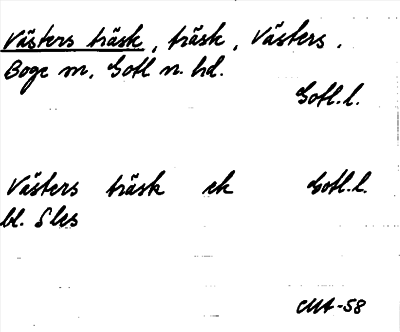 Västers träsk, träsk, Västers.
Boge sn, Gotl n. hd.
Gotl. l.
Västers träsk ek Gotl. l.
bl. Slss
CMA-58